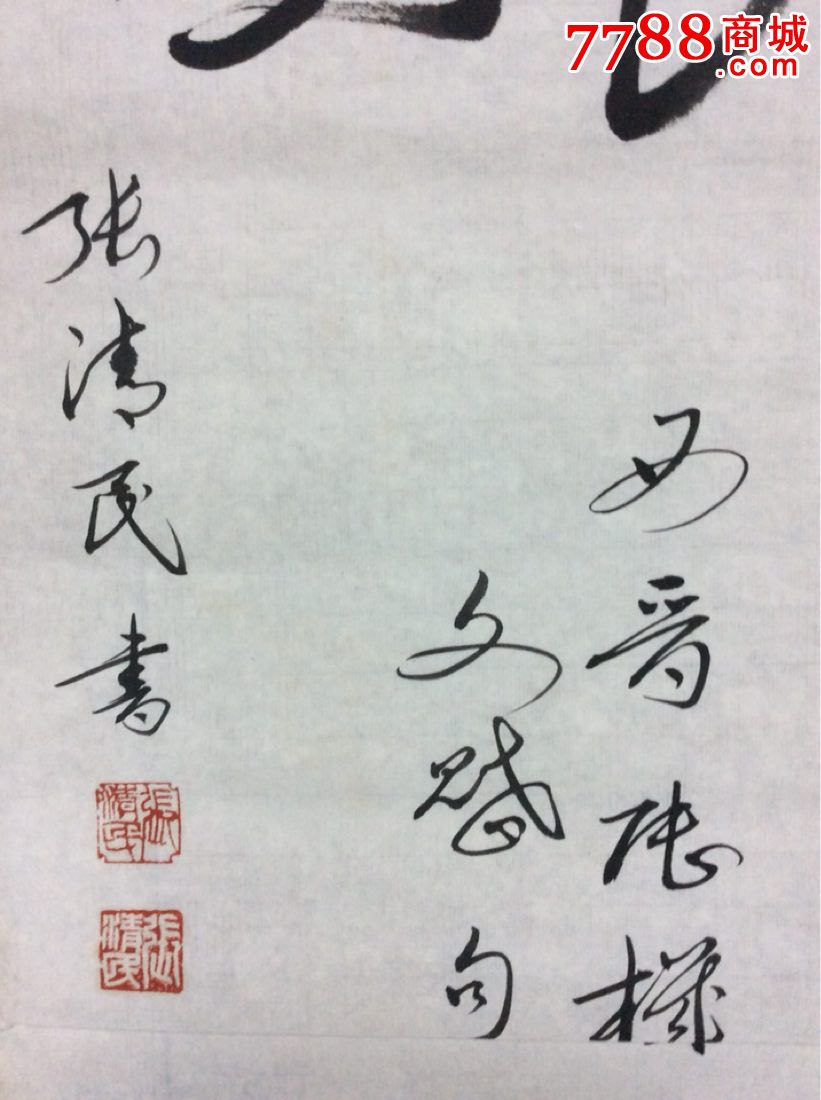 7788商城
.com
西晋陆機
文赋句
张清民书
张清民
张清民